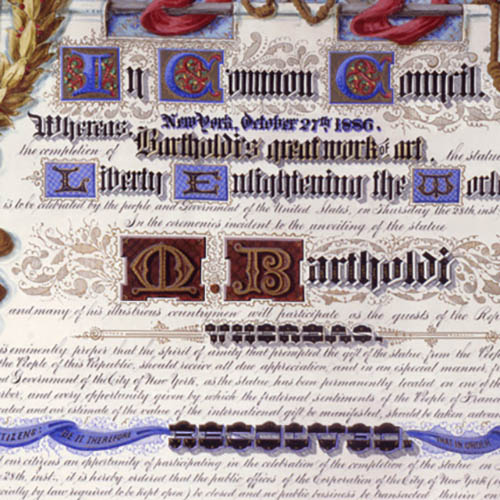 In Common Council.
New York, October 27th 1886.
Whereas, Bartholdi's great work of art, the statue
the completion of
Liberty Enlightening the Worl
is to be celebrated by the people and Government of the United States, on Thursday the 28th inst
In the ceremonies incident to the unveiling of the statue
M. Bartholdi
and many of his illustrious countrymen will participate as the guests of the Rep
WHEREAS
is eminently proper that the spirit of amity that prompted the gift of the statue from the
the People of this Republic, should receive all due appreciation, and in an especial manner
nd Government of the City of New York, as the statue has been permanently located on one of th
arbor, and every opportunity given by which the fraternal sentiments of the People of Fran
cated and our estimate of the value of the international gift be manifested, should be taken
BE IT THEREFORE RESOLVED THAT IN ORDER
our citizens an opportunity of participating in the celebration of the completion of the statue on
28th. inst., it is hereby ordered that the public offices of the Corporation of the City of New York
ally by law required to be kept open) be closed and no public business be transacted therein